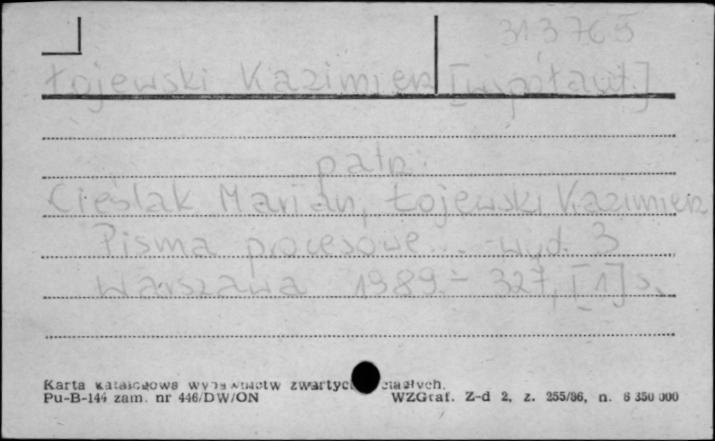 313765
Łojewski Kazimierz [współaut.]
patrz:
Cieślak Marian, Łojewski Kazimierz
Pisma procesowe... - wyd. 3
Warszawa 1989. - 327, [1] s.
Karta katalogowa wydawnictw zwartych ciągłych.
Pu-B-144 zam. nr 446/DW/ON WZGraf. Z-d 2, z. 255/86, n. 6 350 000